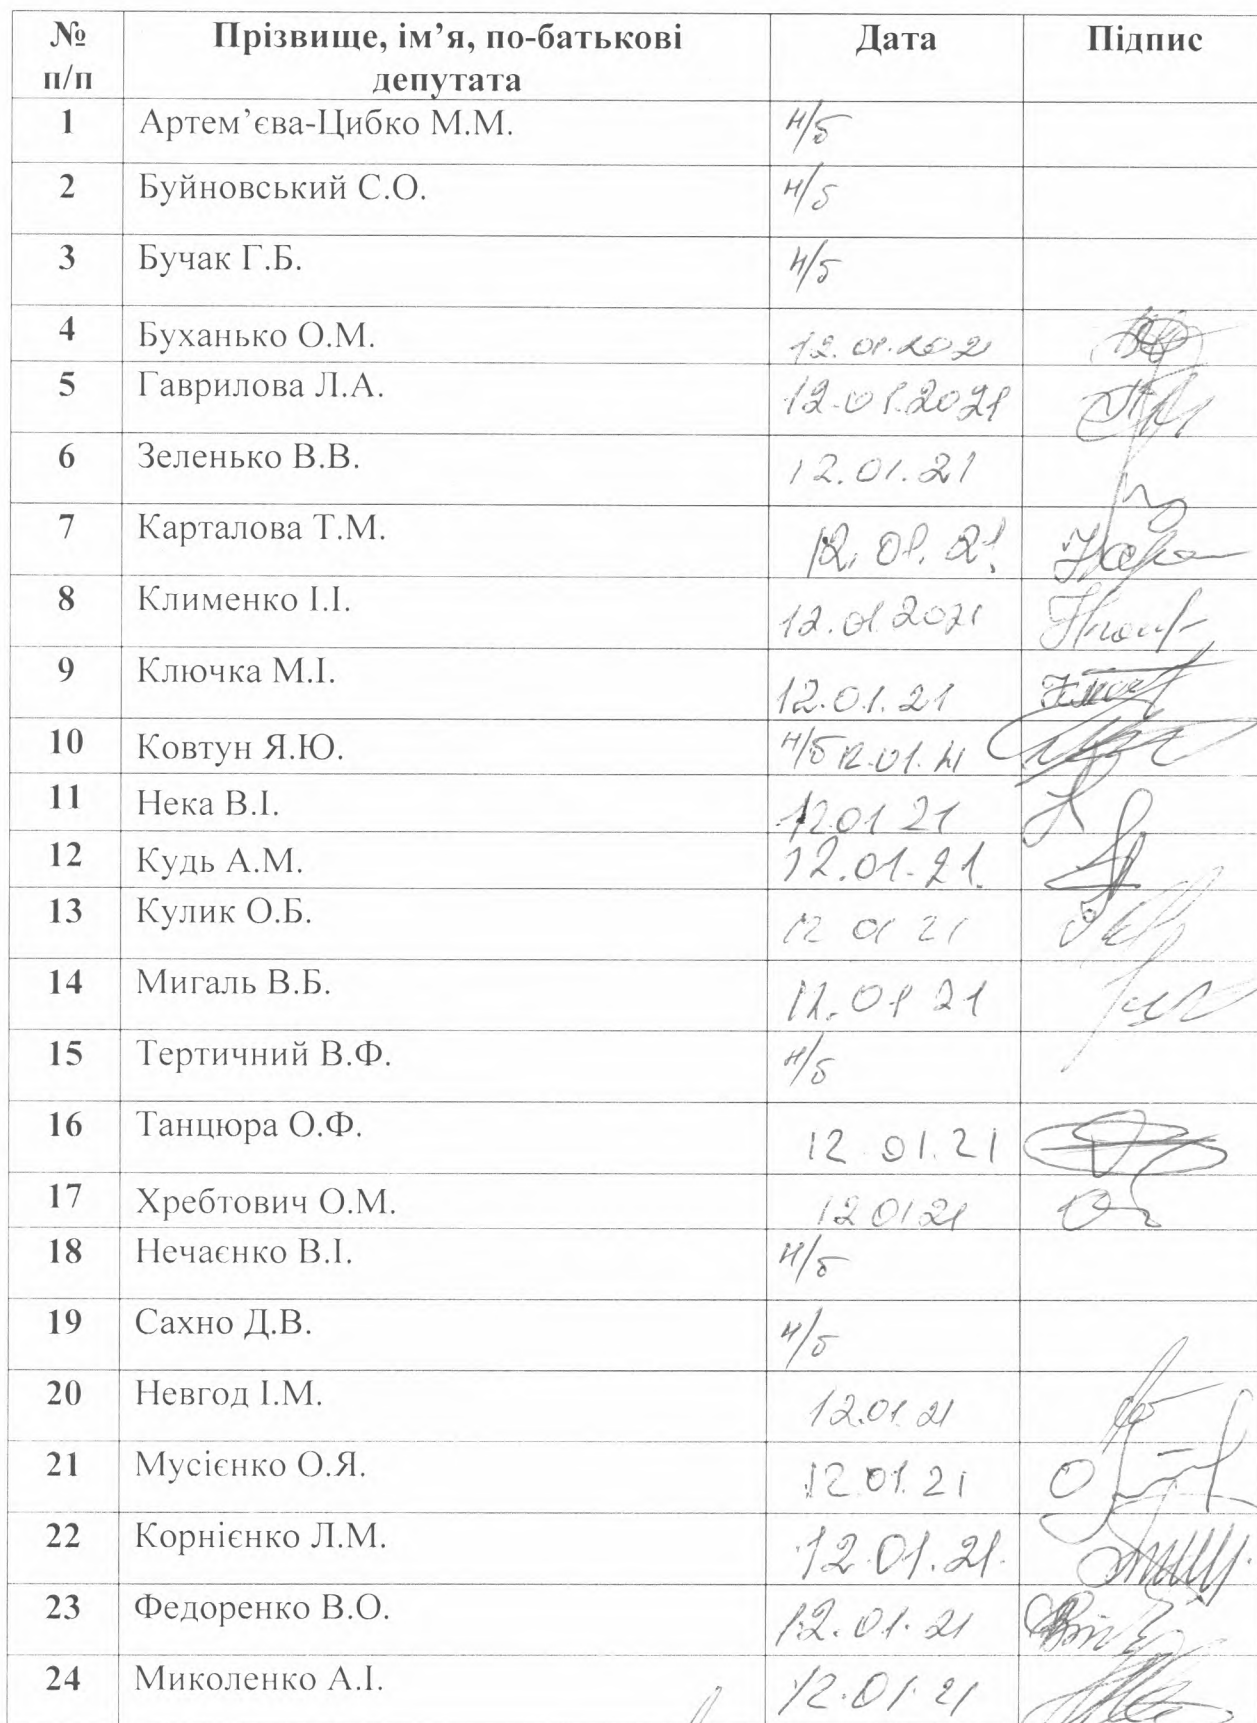 № Прізвище, ім’я, по-батькові Дата Підпис
п/п депутата
1 Артем’єва-Цибко М.М. н/б
2 Буйновський С.О. н/б
3 Бучак Г.Б. н/б
4 Буханько О.М. 12.01.2021
5 Гаврилова Л.А. 12.01.2021
6 Зеленько В.В. 12.01.21
7 Карталова Т.М. 12.01.21.
8 Клименко І.І. 12.01.2021
9 Ключка М.І. 12.01.21
10 Ковтун Я.Ю. н/б 12.01.21
11 Нека В.І. 12.01 21
12 Кудь А.М. 12.01.21.
13 Кулик О.Б. 12 01 21
14 Мигаль В.Б. 12.01 21
15 Тертичний В.Ф. н/б
16 Танцюра О.Ф. 12.01.21
17 Хребтович О.М. 12.01 21
18 Нечаєнко В.І. н/б
19 Сахно Д.В. н/б
20 Невгод І.М. 12.01 21
21 Мусієнко О.Я. 12.01.21
22 Корнієнко Л.М. 12.01.21.
23 Федоренко В.О. 12.01.21
24 Миколенко А.І. 12.01.21